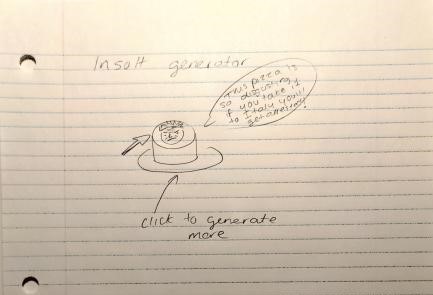 Insolt generator
This pizza is
so disgusting
if you take it
to Italy you'll
get arrested!
click to generate
more